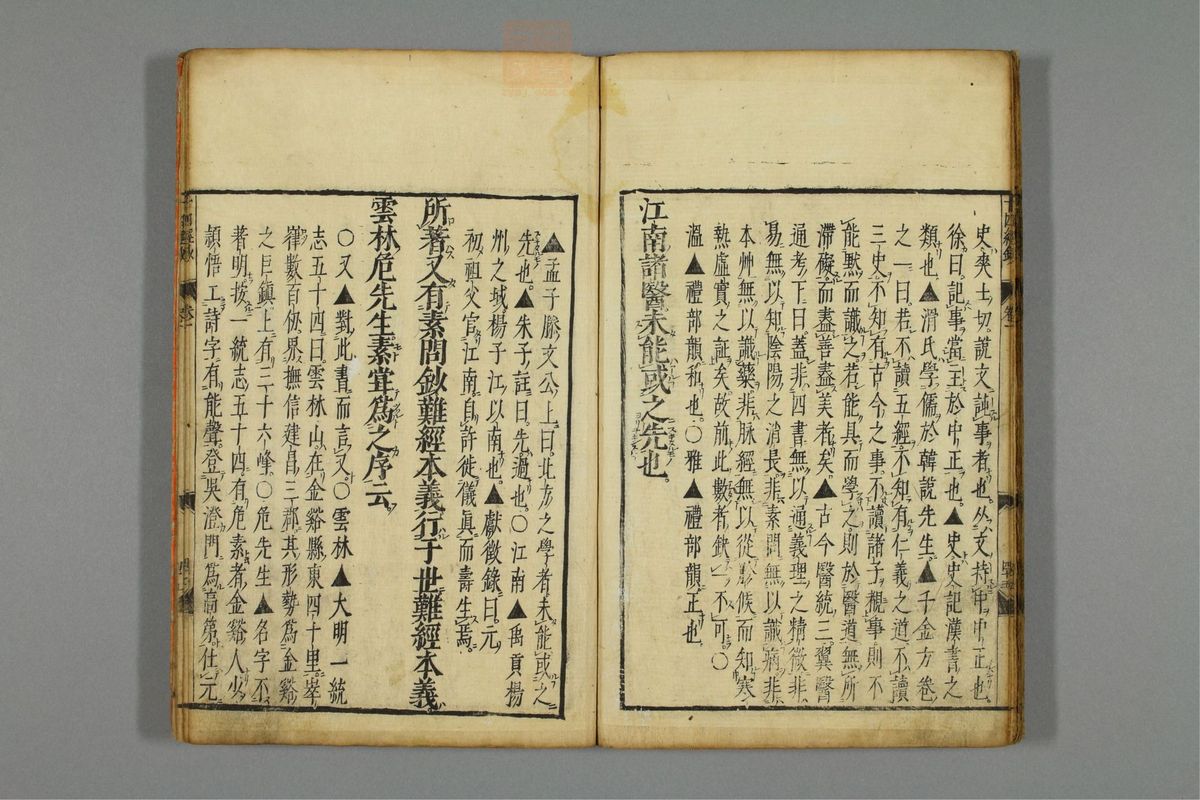 史㚖士切。說文記事者也。从又持中。中正也。
徐曰。記事當主於中正也。▲史。史記漢書之
類也。▲滑氏學儒於韓說先生。▲千金方卷
之一曰。若不讀五經不知有仁義之道。不讀
三史不知有古今之事。不讀諸子覩事則不
能默而識之。若能具而學之則於醫道無所
滯礙。而盡善盡美者矣。▲古今醫統三。翼醫
通考下曰。蓋非四書無以通義理之精微。非
易無以知陰陽之消長。非素問無以識病。非
本艸無以識藥。非脉經無以從𦙶候而知寒
熱虛實之証矣。故前此數者缺一不可。〇
溫▲禮部韻和也。〇雅▲禮部韻正也。
江南諸醫未能或之先也。
▲孟子滕文公上曰。北方之學者未能或之
先也。▲朱子註曰。先過也。〇江南▲禹貢揚
州之域。楊子江以南也。▲獻徵錄曰。元
初。祖父官江南。自許徙儀眞而壽生焉。
所著又有素問鈔難經本義行于世難經本義
雲林危先生素嘗爲之序云。
〇又▲對此書而言又。〇雲林▲大明一統
志五十四曰。雲林山。在金谿縣東四十里。峯
嵂數百仞。界撫信建昌三郡。其形勢爲金谿
之巨鎭。上有三十六峰。〇危先生▲名字不
著明。按一統志五十四。有危素者。金谿人。少
穎悟。工詩字有能聲。登吳澄門爲高第。仕元